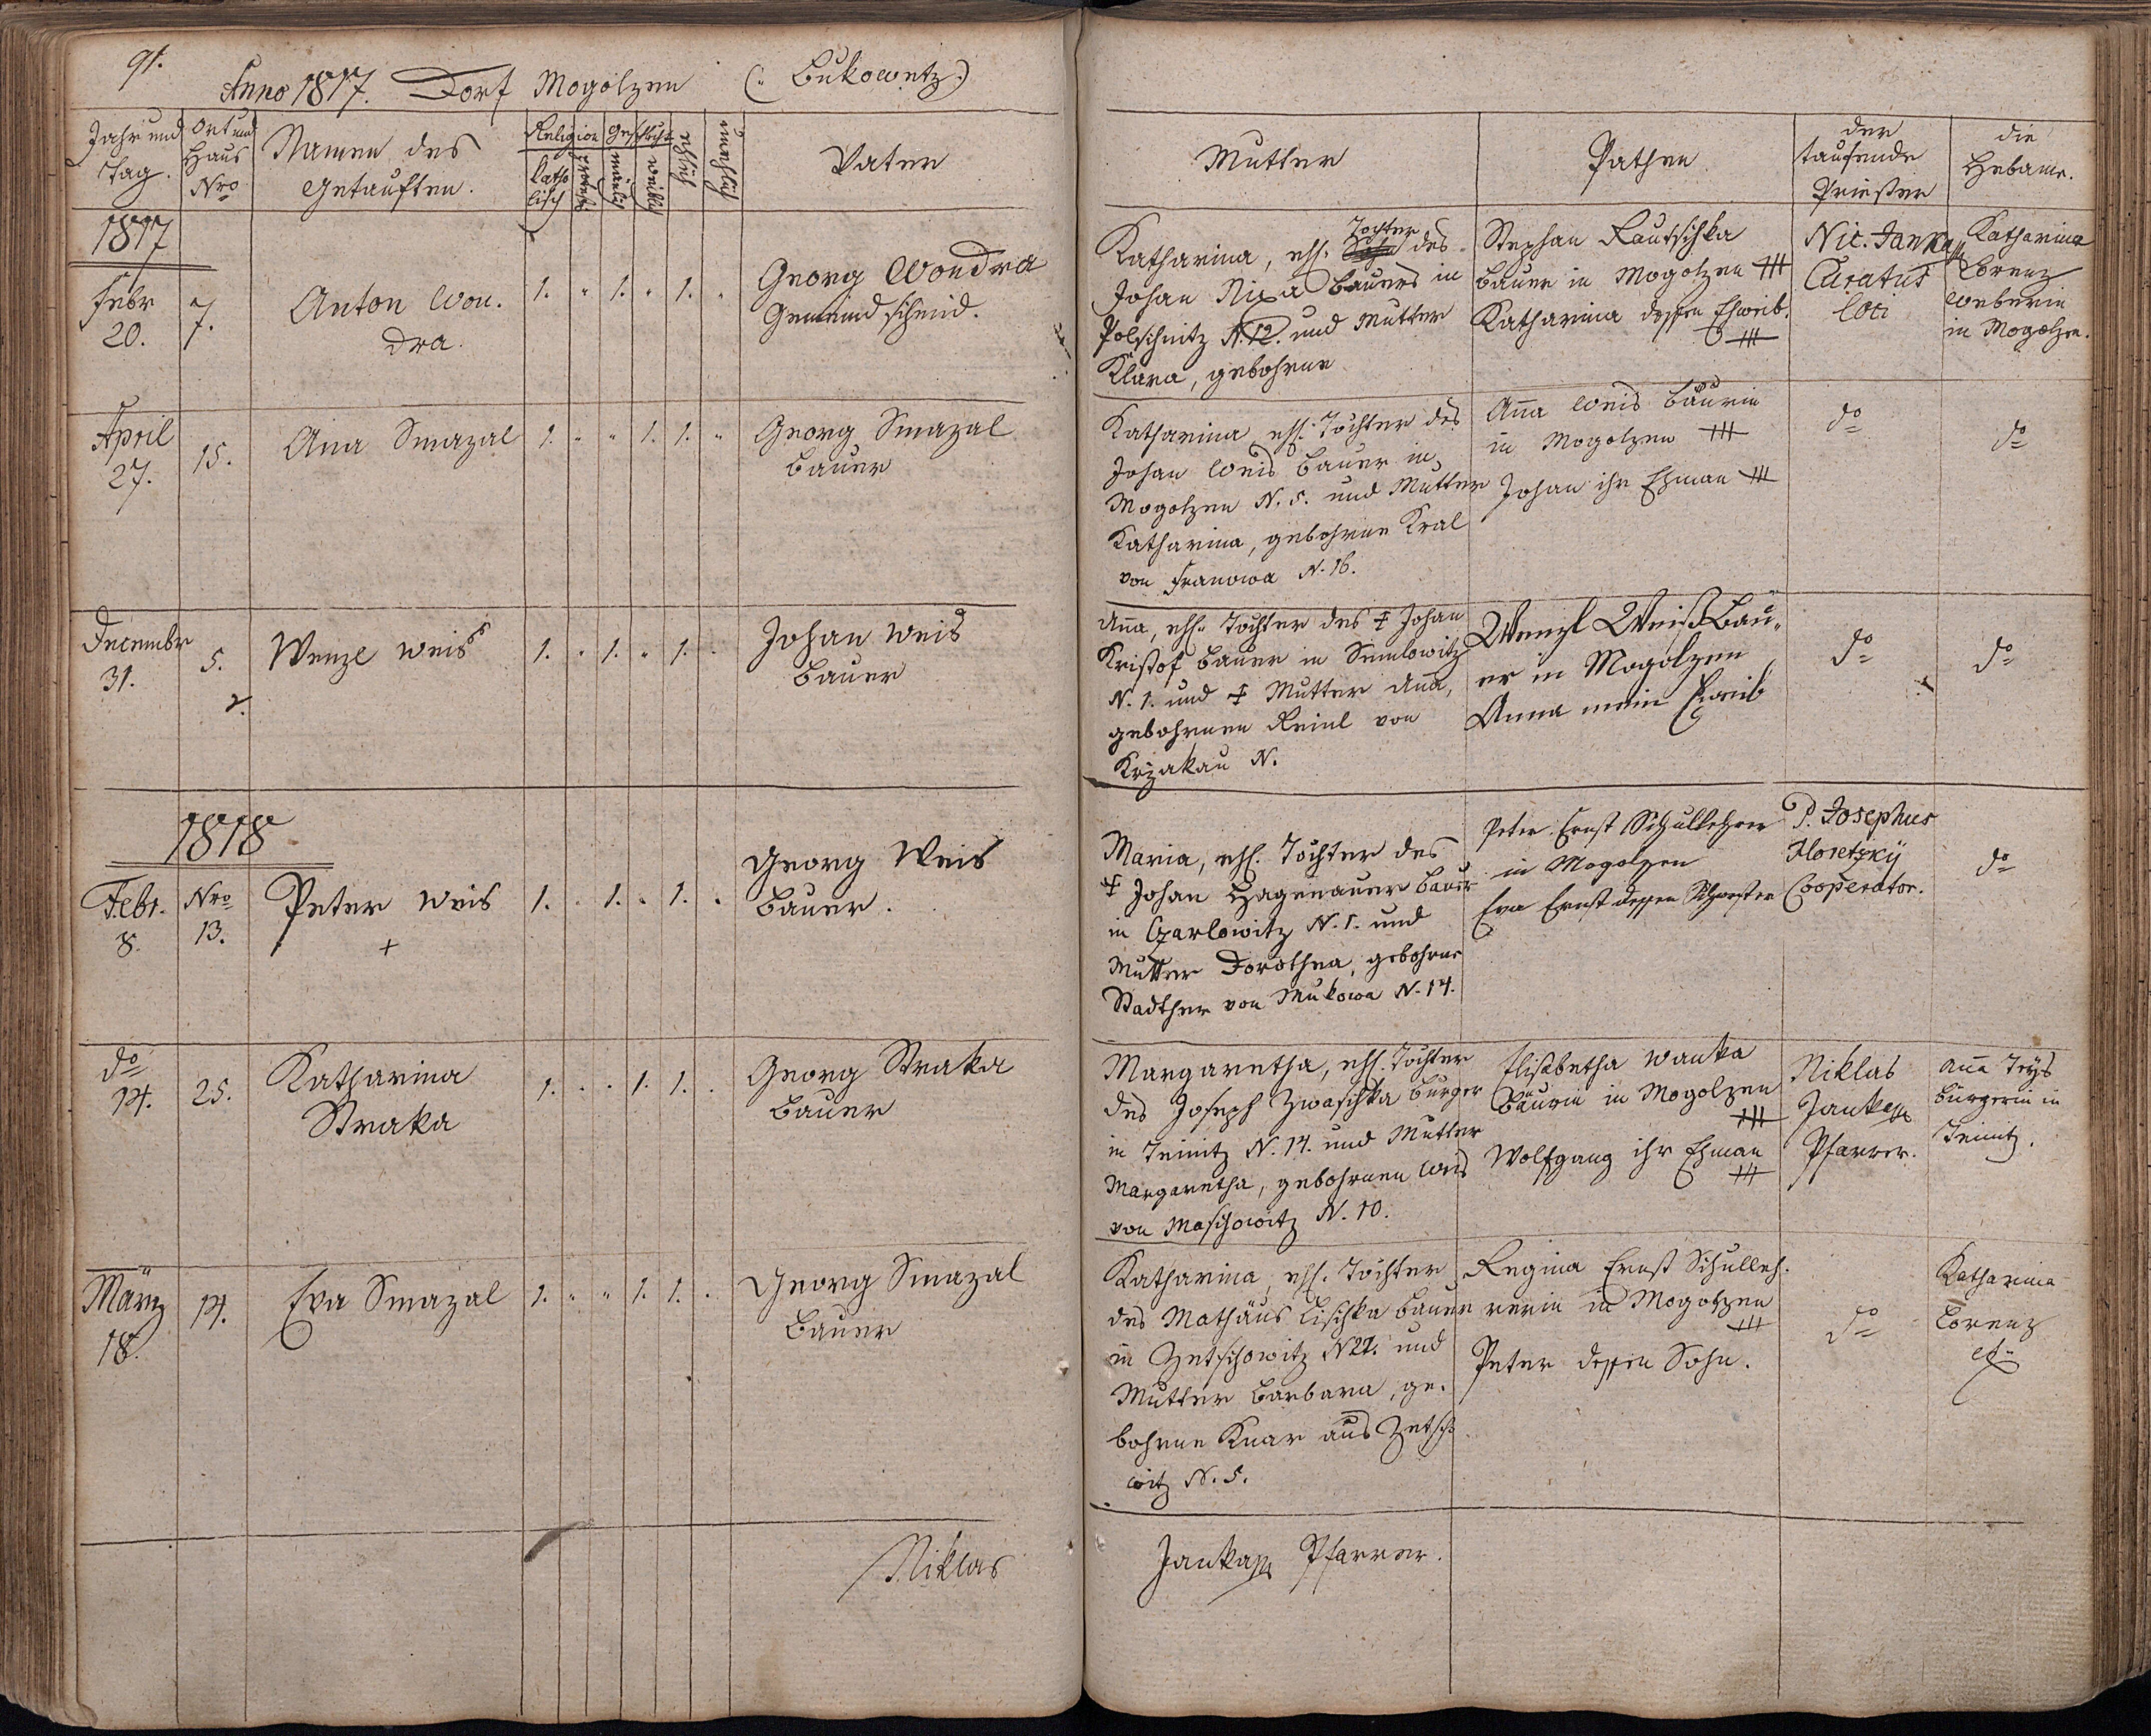 91.
Anno 1817. Dorf Mogolzen (: Bukowetz :)
Jahr und Tag.
Ort und Haus Nro
Namen des Getauften.
Religion
Katholisch
Geschlecht
männlich
weiblich
ehelich
unehelich
Vater
Mutter
Pathen
der taufende Priester
die Hebame.
1817
Febr
20.
7.
Anton Won-
dra.
1. " 1. " 1. "
Georg Wondra
Gemeindschmid.
Katharina, ehl. Tochter des
Johan Nixa Bauers in
Polschnitz N. 12. und Mutter
Klara, gebohrne
Stephan Rautschka
Bauer in Mogolzen +++
Katharina dessen Eheweib.
+++
Nic. Janka
Curatus
loci
Katharina
Lorenz
Weberin
in Mogolzen.
April
27.
15.
Ana Smazal
1. " " 1. 1. "
Georg Smazal
Bauer
Katharina ehl. Tochter des
Johan Weis Bauer in
Mogolzen N. 5. und Mutter
Katharina, gebohrne Kral
von Franowa N. 16.
Ana Weis Bäurin
in Mogolzen +++
Johan ihr Ehman +++
do
do
Decembr
31.
5.
Wenzl Weis
1. " 1. " 1. "
Johan Weis
Bauer
Ana, ehl. Tochter des † Johan
Kristof Bauer in Semlowitz
N. 1. und † Mutter Ana,
gebohrnen Reinl von
Krzakau N.
Wenzl Weiß Bau-
er in Mogolzen
Anna mein Eheweib
do
do
1818
Febr.
8.
Nro
13.
Peter Weis
+
1. . 1. . 1. .
Georg Weis
Bauer.
Maria, ehl. Tochter des
† Johan Hagenauer Bauer
in Czarlowitz N. 1. und
Mutter Dorothea, gebohrne
Stadther von Mukowa N. 14.
Peter Ernst Schullehrer
in Mogolzen
Eva Ernst dessen Schwester
P. Josephus
Horetzky
Cooperator.
do
do
14.
25.
Katharina
Straka
1. . . 1. 1. .
Georg Straka
Bauer
Margaretha, ehl. Tochter
des Joseph Zwaschka Burger
in Teinitz N. 14. und Mutter
Margaretha, gebohrnen Weis
von Maschowitz N. 10.
Elisabetha Wanka
Bäurin in Mogolzen
+++
Wolfgang ihr Ehman
+++
Niklas
Janka
Pfarrer.
Ana
Bürgerin in
Teinitz.
März
18.
14.
Eva Smazal
1. " " 1. 1. .
Georg Smazal
Bauer
Katharina, ehl. Tochter
des Mathäus Lischka Bauer
in Zetschowitz N 27. und
Mutter Barbara, ge-
bohrne Knar aus Zetscho
witz N. 5.
Regina Ernst Schulleh-
rerin in Mogolzen
+++
Peter dessen Sohn.
do
Katharina
Lorenz
Niklas Janka Pfarrer.